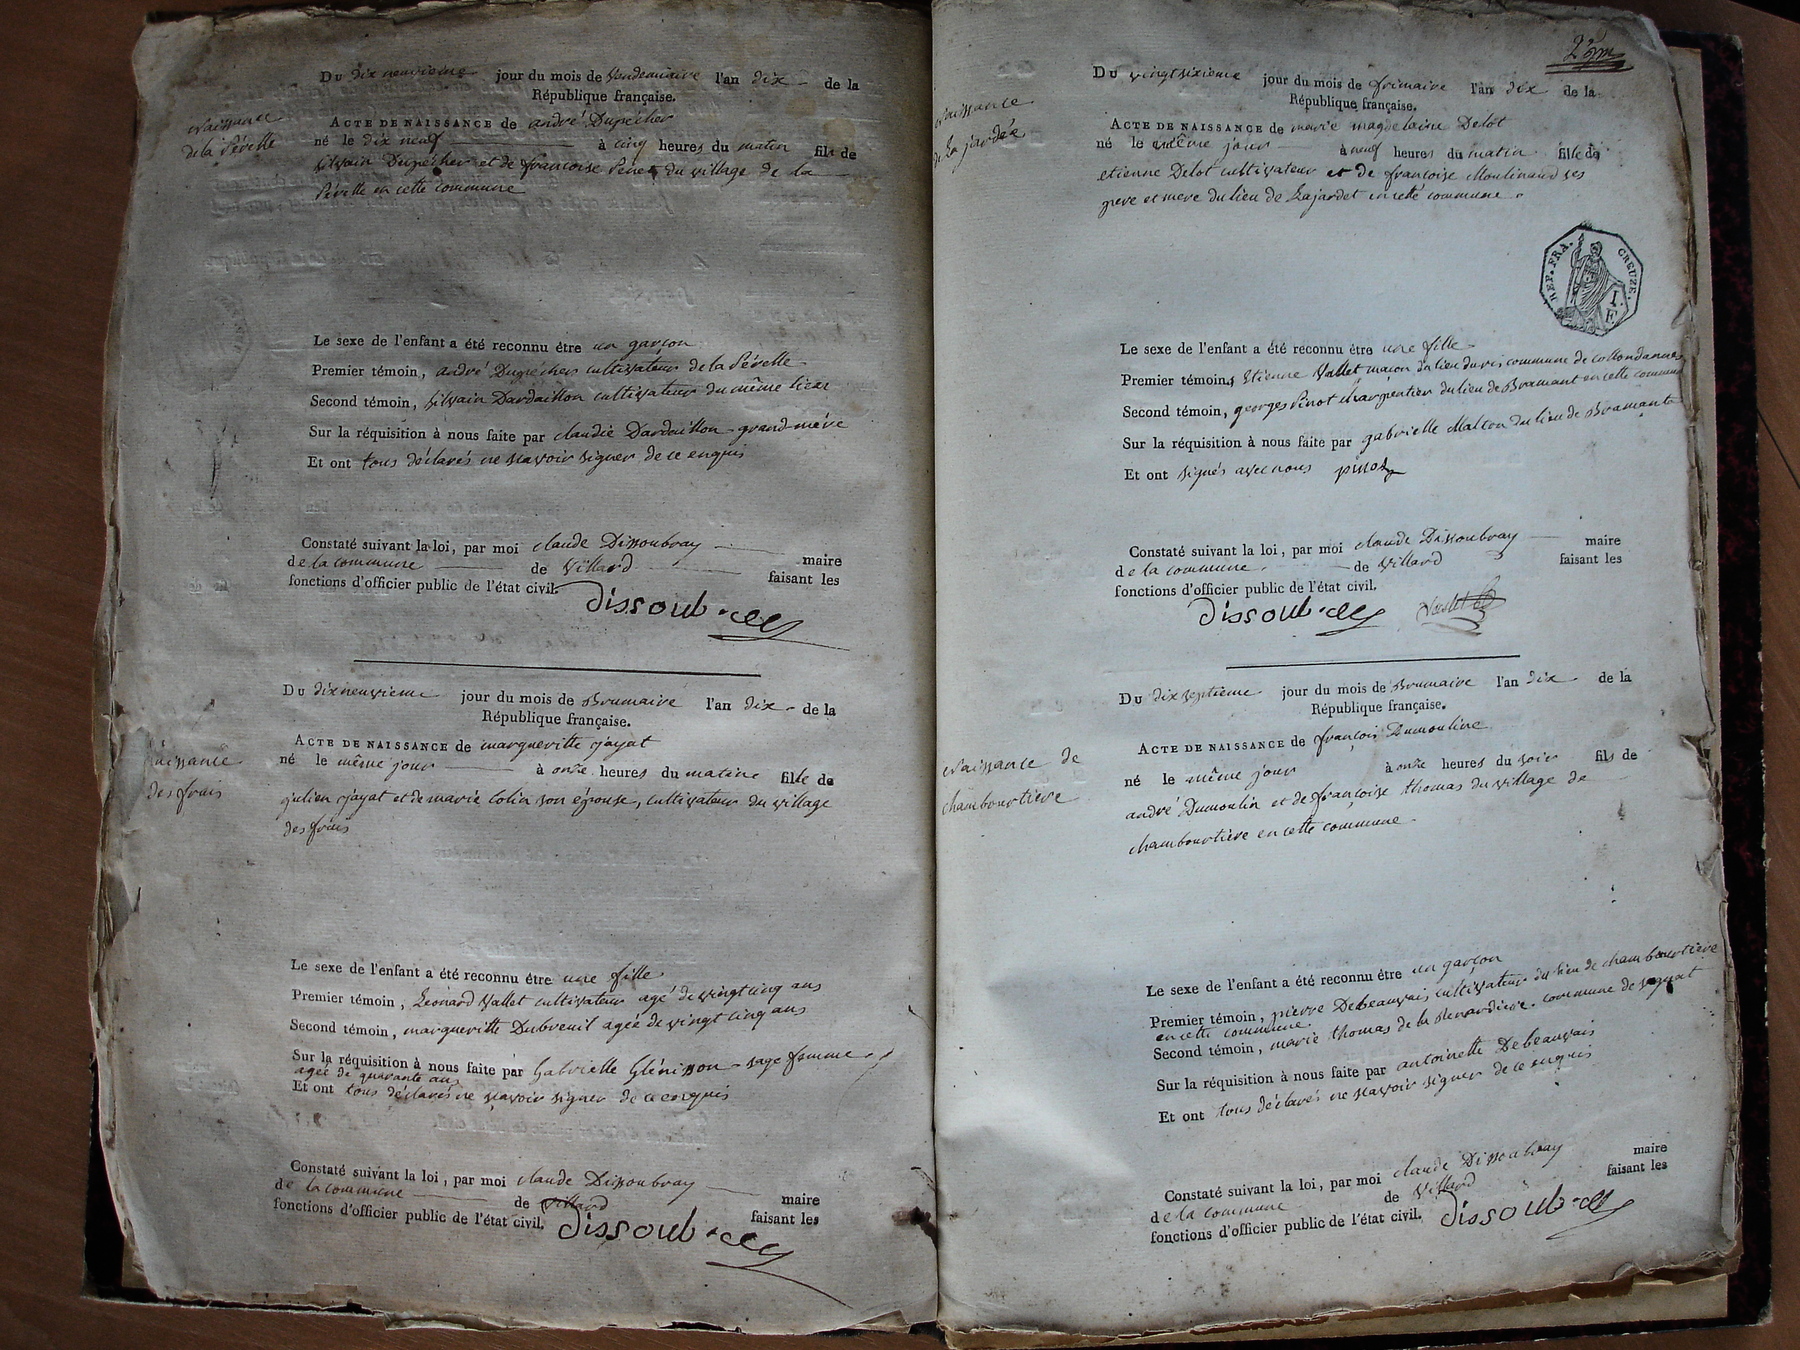 Naissance
de la Pérelle
Du dix neuvieme jour du mois de Vendemiaire l'an dix de la
République française.
ACTE DE NAISSANCE de andré Dupécher
né le dix neuf à cinq heures du matin fils de
Silvain Dupécher et de francoise Penet du village de la
Pérelle en cette commune
Le sexe de l'enfant a été reconnu être un garçon
Premier témoin, andré Dupécher cultivateur de la Pérelle
Second témoin, Silvain Dardaillon cultivateur du même lieu
Sur la réquisition à nous faite par claudie Dardaillon grand-mére
Et ont tous déclarés ne scavoir signer de ce enquis
Constaté suivant la loi, par moi claude Dissoubray maire
de la commune de Villard faisant les
fonctions d'officier public de l'état civil.
Dissoubray
Naissance
des frais
Du dixneuvieme jour du mois de Brumaire l'an dix de la
République française.
ACTE DE NAISSANCE de margueritte jayat
né le même jour à onze heures du matine fille de
julien jayat et de marie Colin son épouse, cultivateur du village
des frais
Le sexe de l'enfant a été reconnu être une fille
Premier témoin, Leonard Vallet cultivateur agé de vingt cinq ans
Second témoin, margueritte Dubreuil agée de vingt cinq ans
Sur la réquisition à nous faite par Gabrielle Glénisson sage femme
agée de quarante ans
Et ont tous déclarés ne scavoir signer de ce enquis
Constaté suivant la loi, par moi claude Dissoubray maire
de la commune de Villard faisant les
fonctions d'officier public de l'état civil.
Dissoubray
Naissance
de La jardée
Du vingt sixieme jour du mois de frimaire l'an dix de la
République française.
ACTE DE NAISSANCE de marie magdelaine Delot
né le même jour à neuf heures du matin fille de
etienne Delot cultivateur et de françoise Moulinaud ses
pere et mere du lieu de Lajardet en cette commune.
REP. FRA. CREUZE.
Le sexe de l'enfant a été reconnu être une fille
Premier témoin, Etienne Vallet maçon du lieu du ris commune de collondannes
Second témoin, georges Pinot charpentier du lieu de Bramant en cette commune
Sur la réquisition à nous faite par gabrielle Malcou du lieu de Bramant
Et ont signés avec nous pinot
Constaté suivant la loi, par moi claude Dissoubray maire
de la commune de Villard faisant les
fonctions d'officier public de l'état civil.
Dissoubray
Naissance de
chambourtiere
Du dix septieme jour du mois de Brumaire l'an dix de la
République française.
ACTE DE NAISSANCE de françois Dumouline
né le même jour à onze heures du soir fils de
andré Dumoulin et de françoise thomas du village de
chambourtiere en cette commune
Le sexe de l'enfant a été reconnu être un garçon
Premier témoin, pierre Debeauvais cultivateur du lieu de chambourtiere
en cette commune
Second témoin, marie thomas de la Renardiere commune de sagnat
Sur la réquisition à nous faite par antoinette Debeauvais
Et ont tous déclarés ne scavoir signer de ce enquis
Constaté suivant la loi, par moi claude Dissoubray maire
de la commune de Villard faisant les
fonctions d'officier public de l'état civil.
Dissoubray